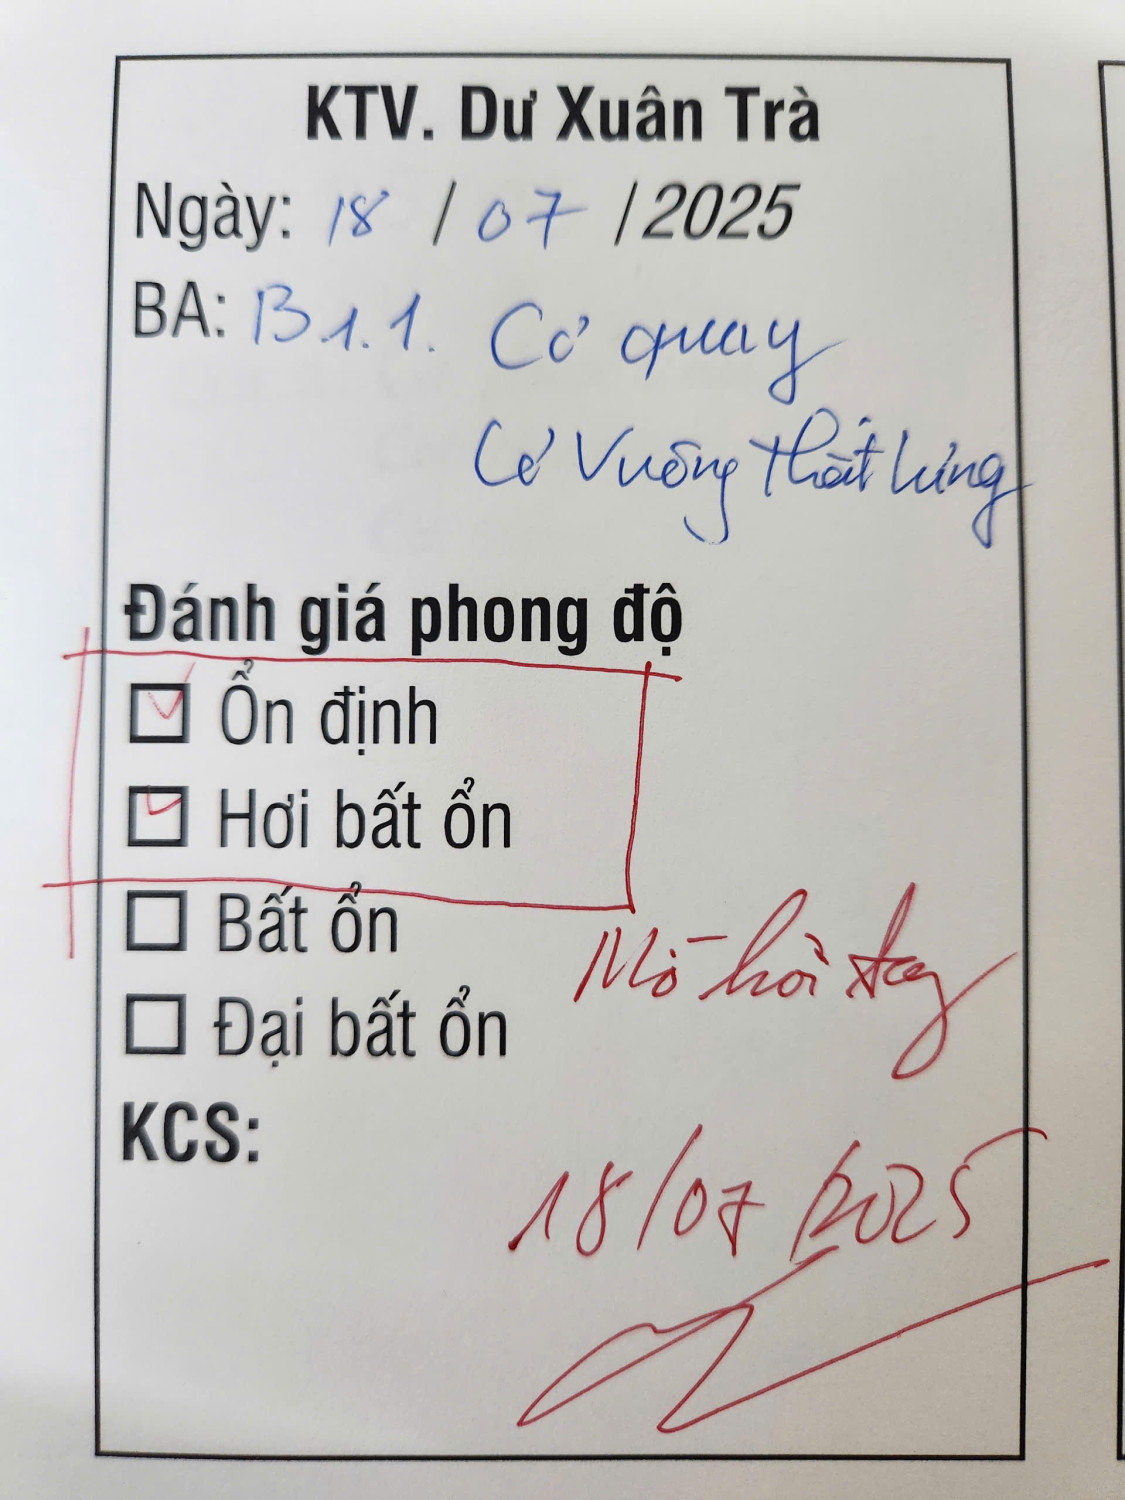 KTV. Dư Xuân Trà
Ngày: 18 / 07 / 2025
BA: B1.1. Cơ quay
Cơ Vuông thắt lưng
Đánh giá phong độ
Ổn định
Hơi bất ổn
Bất ổn
Đại bất ổn
Mồ hôi tay
KCS:
18/07/2025